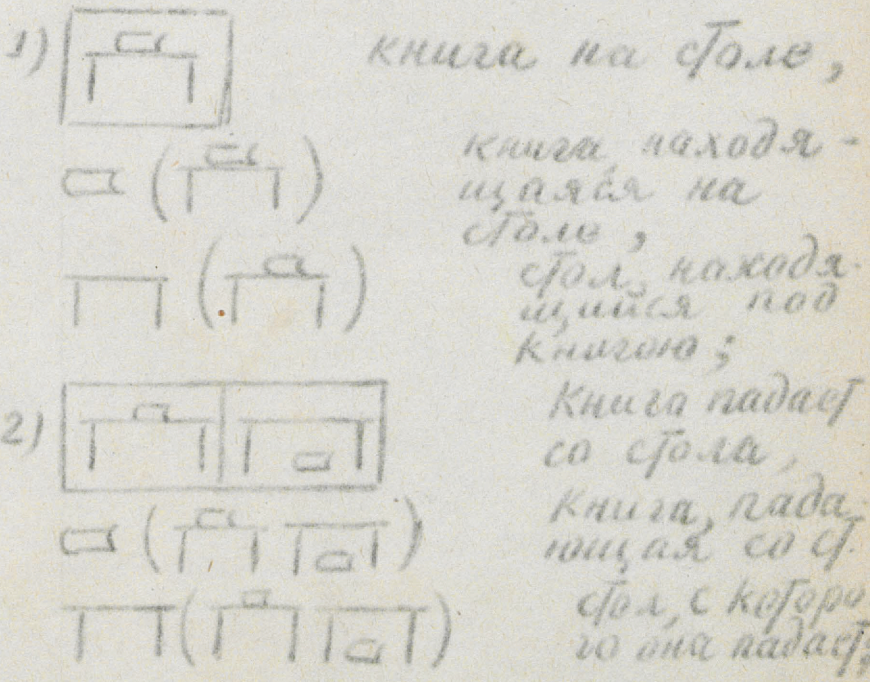 1) книга на столе,
книга, находя-
щаяся на
столе,
стол, находя-
щийся под
книгою;
2) Книга падает
со стола,
Книга, пада-
ющая со ст.
стол, с которо
го она падает,